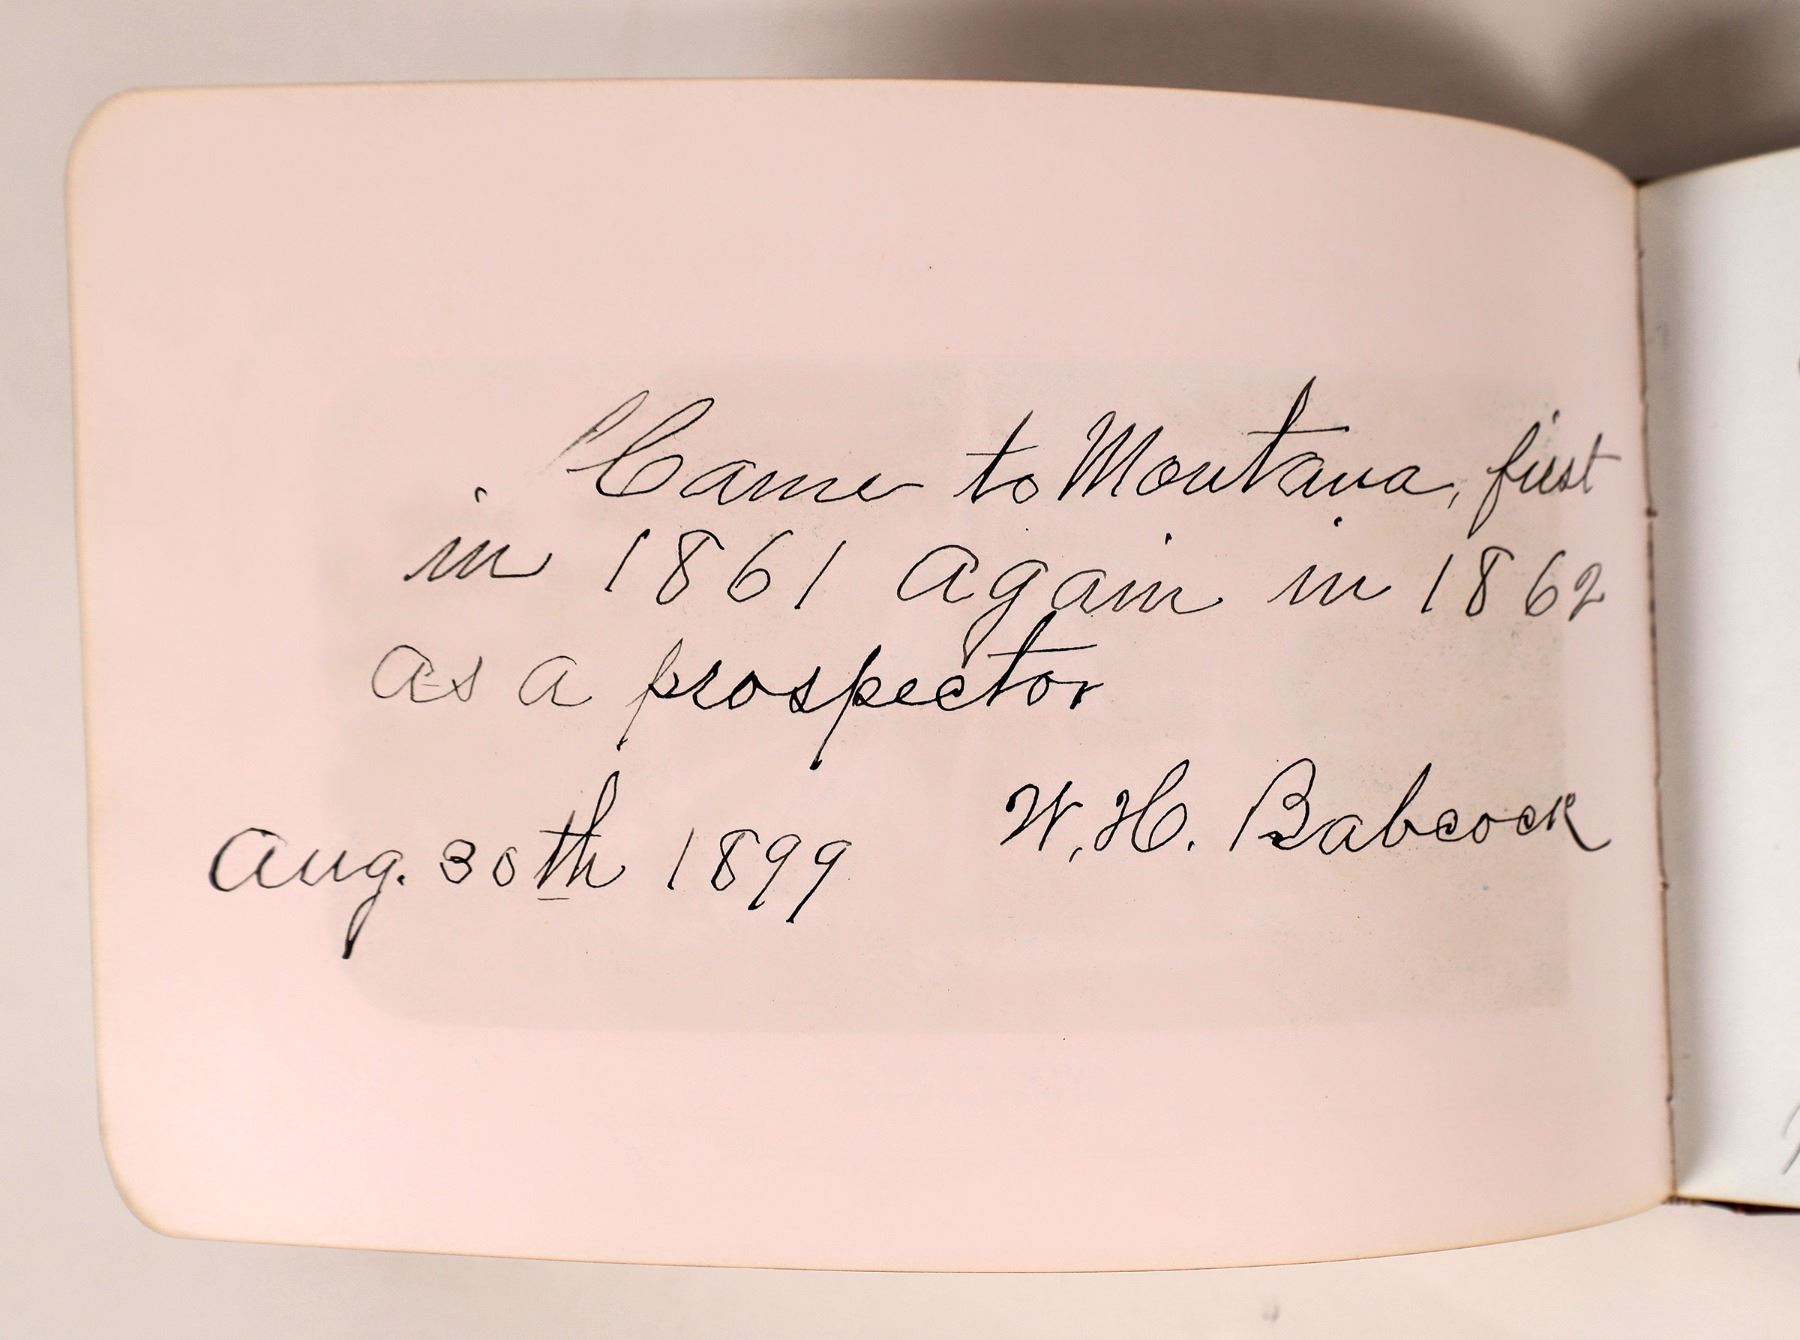 Came to Montana, first
in 1861 again in 1862
as a prospector
W. H. Babcock
Aug. 30th 1899